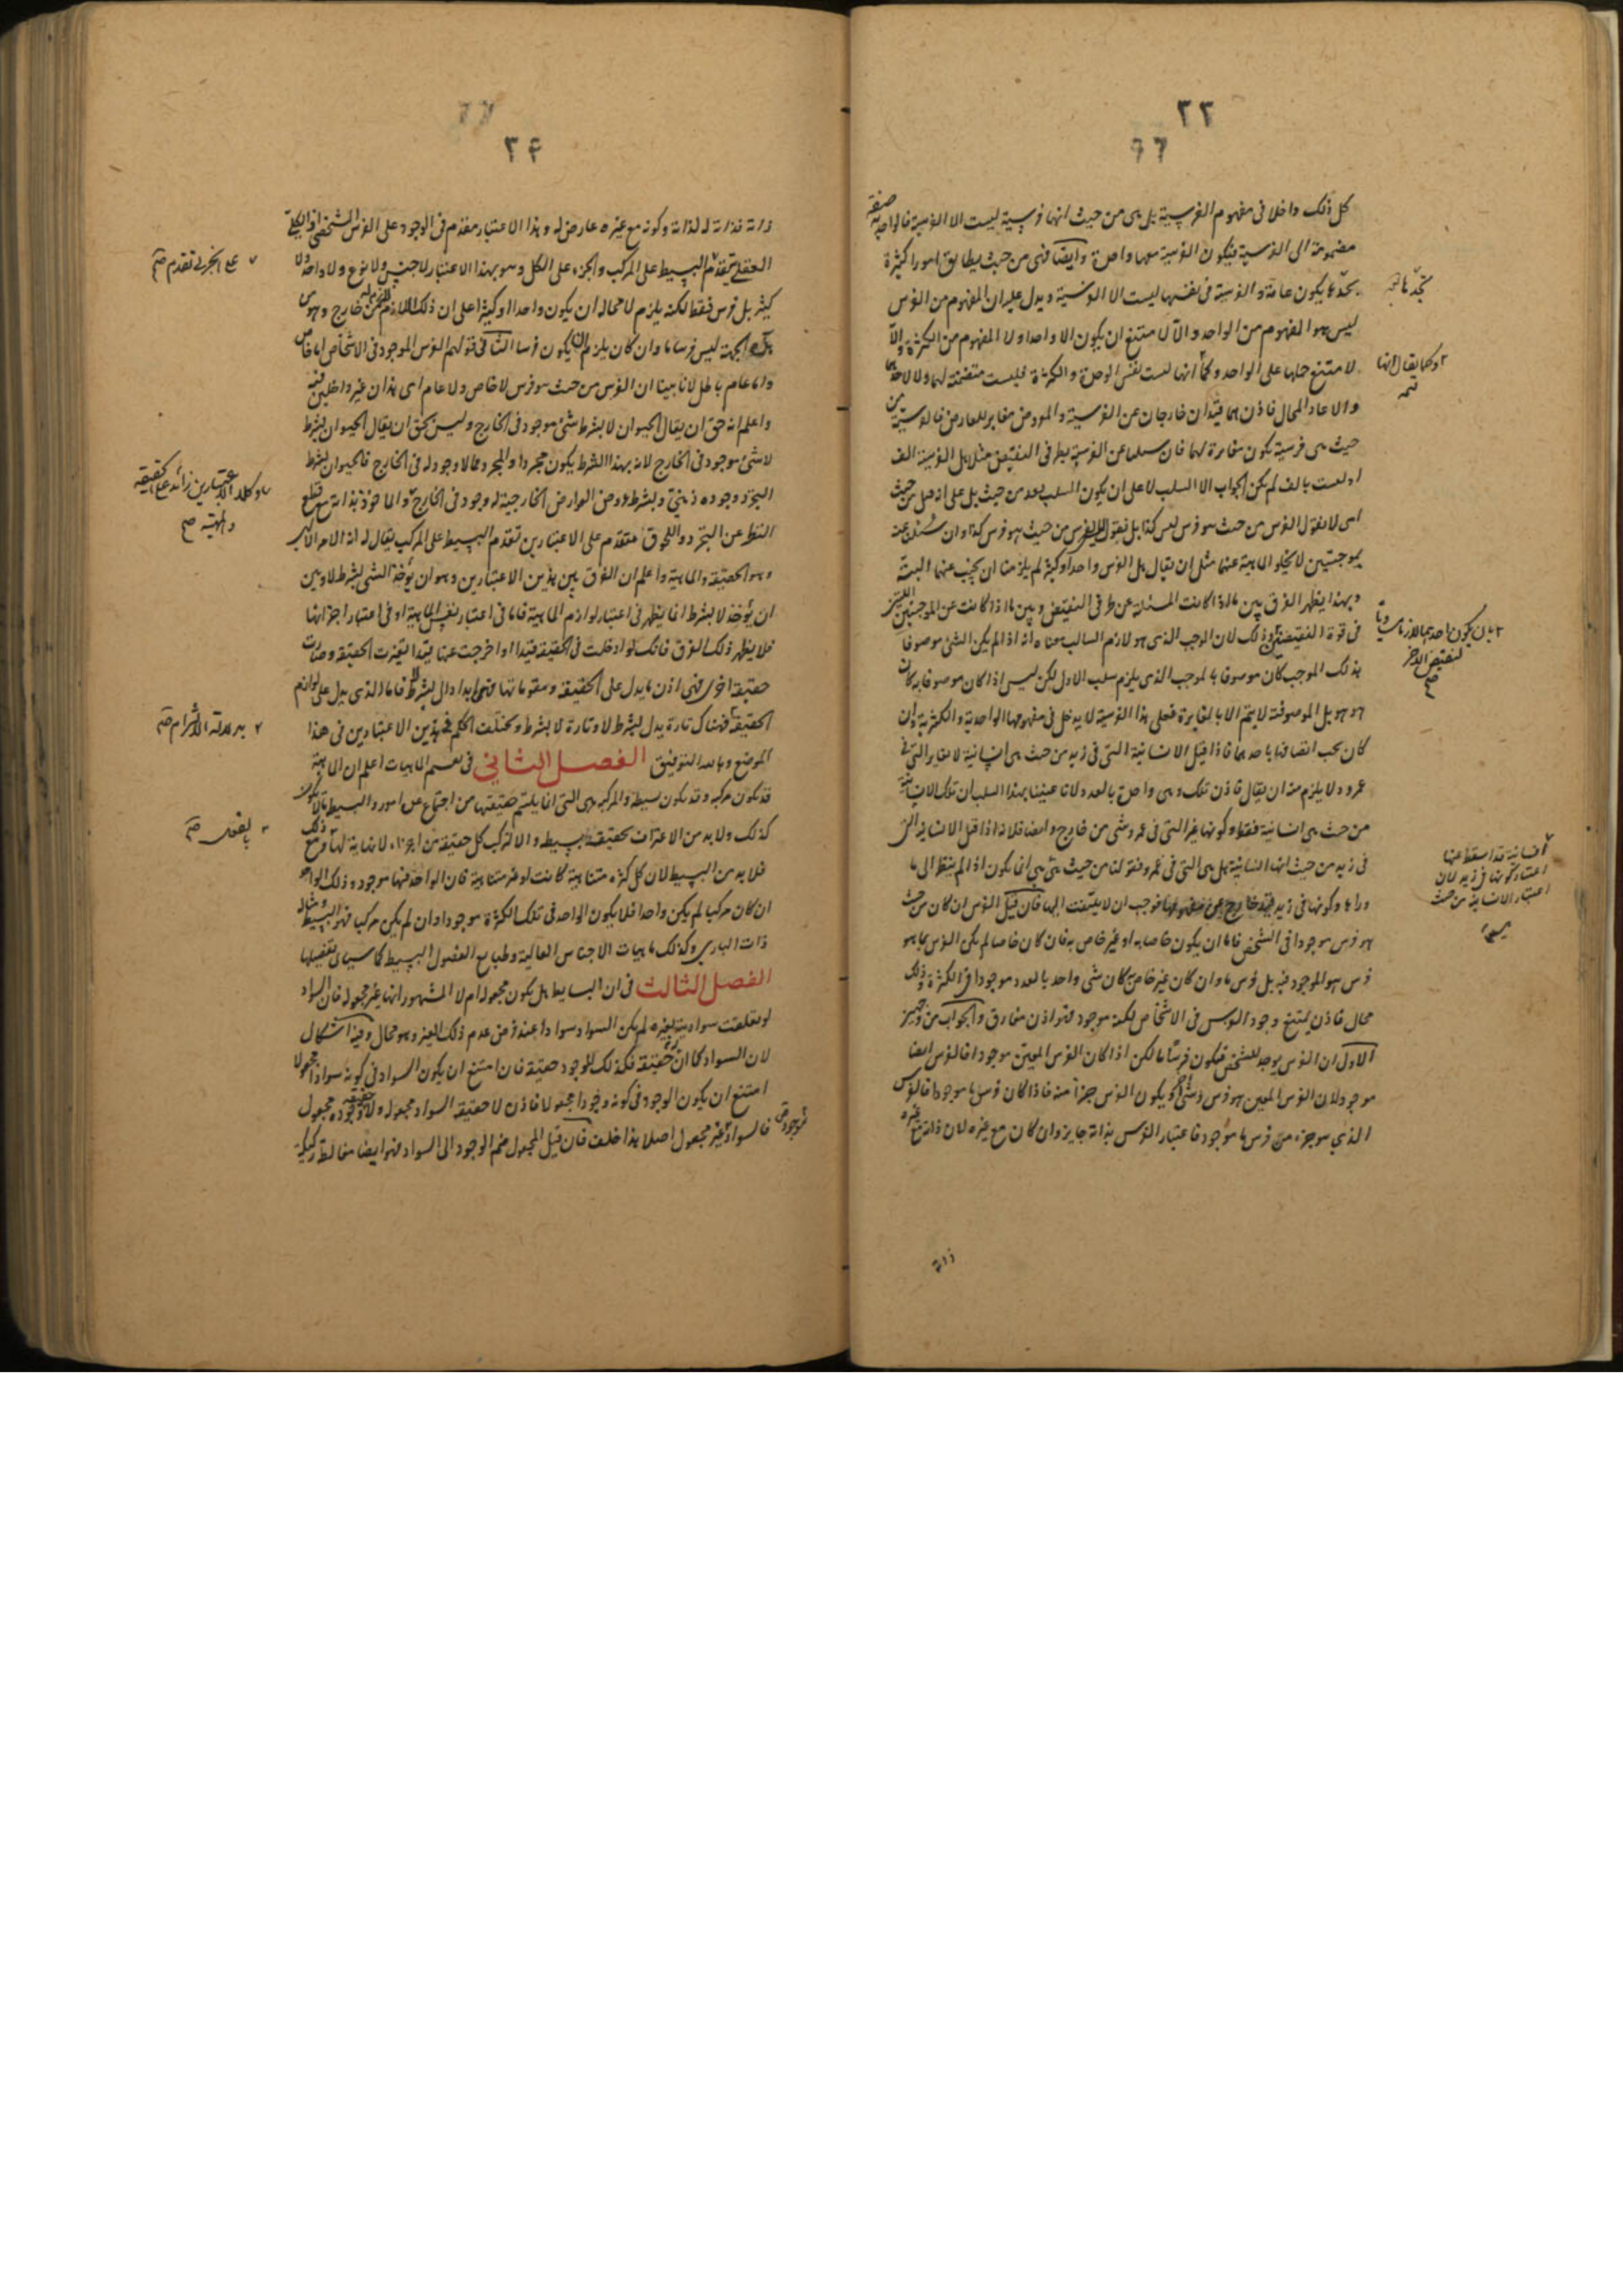 ٢٣
كل ذلك داخلا فى مفهوم الفرسية بل هى من حيث انها فرسية ليست الا الفرسية فالواحدية صفة
مضمومة الى الفرسية فيكون الفرسية معها واحدة وايضا فهى من حيث يطابق امورا كثيرة
بحدها يكون عامة والفرسية فى نفسها ليست الا الفرسية ويدل عليه ان المفهوم من الفرس
ليس هو المفهوم من الواحد والا لامتنع ان يكون الا واحدا ولا المفهوم من الكثرة والا
لامتنع حملها على الواحد وكما انها ليست نفس الوحدة والكثرة فليست متضمنة لهما ولا لاحدهما
والا عاد المحال فاذن هما قيدان خارجان عن الفرسية والمعروض مغاير للعارض فالفرسية من
حيث هى فرسية يكون مغايرة لهما فان سئلنا عن الفرسية بطرفى النقيض مثلا هل الفرسية الف
او ليست بالف لم يكن الجواب الا السلب لا على ان يكون السلب بعد من حيث بل على انه قبل من حيث
اى لا نقول الفرس من حيث هو فرس ليس كذا بل نقول ليس الفرس من حيث هو فرس كذا وان سئلنا عنه
بموجبتين لا يخلو الماهية عنهما مثل ان يقال هل الفرس واحد او كثير لم يلزمنا ان نجيب عنهما البتة
وبهذا يظهر الفرق بين ما اذا كانت المسئلة عن طرفى النقيض وبين ما اذا كانت عن الموجبتين اللتين
فى قوة النقيضين وذلك لان الموجب الذى هو لازم السالب معناه انه اذا لم يكن الشئ موصوفا
بذلك الموجب كان موصوفا بالموجب الذى يلزم سلب الاول لكن ليس اذا كان موصوفا به كان
هو هو بل الموصوفية لا يتم الا بالمغايرة فعلى هذا الفرسية لا يدخل فى مفهومها الواحدية والكثرية وان
كان يجب اتصافها باحدهما فاذا قيل الانسانية التى فى زيد من حيث هى انسانية لا تغاير التى فى
عمرو ولا يلزم منه ان يقال فاذن تلك وهى واحدة بالعدد لانا عنينا بهذا السلب ان تلك الانسانية
من حيث هى انسانية فقط وكونها غير التى فى عمرو شى من خارج وايضا فلانه اذا قيل الانسانية التى
فى زيد من حيث انها انسانية هل هى التى فى عمرو فقولنا من حيث هى هى انما يكون اذا لم ينظر الى ما
وراءها وكونها فى زيد قيد خارج عن مفهومها فوجب ان لا يلتفت اليها فان قيل الفرس ان كان من حيث
هو فرس موجودا فى الشخص فاما ان يكون خاصا به او غير خاص به فان كان خاصا لم يكن الفرس بما هو
فرس هو الموجود فيه بل فرس ما وان كان غير خاص كان شى واحد بالعدد موجودا فى الكثرة وذلك
محال فاذن يمتنع وجود الفرس فى الاشخاص لكنه موجود فهو اذن مفارق والجواب من وجهين
الاول ان الفرس يوجد للشخص فيكون فرسا ما لكن اذا كان الفرس المعين موجودا فالفرس ايضا
موجود لان الفرس المعين هو فرس وشئ آخر ويكون الفرس جزأ منه فاذا كان فرس ما موجودا فالفرس
الذى هو جزء من فرس ما موجود فاعتبار الفرس بذاته جايز وان كان مع غيره لان ذاته مع غيره
ذاته
بان يكون احدهما لازما مساويا
لنقيض الاخر
صح
انسانية قد اسقط عنها
اعتبار كونها فى زيد لان
اعتبار الانسانية من حيث
٢٤
ذاته فذاته له لذاته وكونه مع غيره عارض له وهذا الاعتبار مقدم فى الوجود على الفرس الشخصى او الكلى
العقلى تقدم البسيط على المركب والجزء على الكل وهو بهذا الاعتبار لا جنس ولا نوع ولا واحد ولا
كثير بل فرس فقط لكنه يلزم لا محالة ان يكون واحدا او كثيرا على ان ذلك اللازم من خارج وهو من
هذه الجهة ليس فرسا ما وان كان يلزم ان يكون فرسا الثانى قولهم الفرس الموجود فى الاشخاص اما خاص
واما عام باطل لانا بينا ان الفرس من حيث هو فرس لا خاص ولا عام اى هذان غير داخلين فيه
واعلم انه حق ان يقال الحيوان لا بشرط شئ موجود فى الخارج وليس بحق ان يقال الحيوان بشرط
لا شئ موجود فى الخارج لانه بهذا الشرط يكون مجردا والمجرد مما لا وجود له فى الخارج فالحيوان بشرط
التجرد وجوده ذهنى وبشرط عروض العوارض الخارجية له وجود فى الخارج والماخوذ بذاته مع قطع
النظر عن التجرد واللحوق متقدم على الاعتبارين تقدم البسيط على المركب يقال له انه الامر الالهى
وهو الحقيقة والماهية واعلم ان الفرق بين هذين الاعتبارين وهو ان يؤخذ الشى بشرط لا وبين
ان يؤخذ لا بشرط انما يظهر فى اعتبار لوازم الماهية فاما فى اعتبار نفس الماهية او فى اعتبار اجزائها
فلا يظهر ذلك الفرق فانك لو ادخلت فى الحقيقة قيدا او اخرجت عنها قيدا تغيرت الحقيقة وصارت
حقيقة اخرى فهى اذن ما يدل على الحقيقة ومقوماتها فهى ابدا دال بشرط لا فاما الذى يدل على لوازم
الحقيقة فهناك تارة يدل بشرط لا وتارة لا بشرط ويختلف الحكم فى هذين الاعتبارين فى هذا
الموضع وبالله التوفيق الفصل الثانى فى تقسيم الماهيات اعلم ان الماهية
قد يكون مركبة وقد يكون بسيطة والمركبة هى التى انما يلتئم حقيقتها من اجتماع عدة امور والبسيط مالا يكون
كذلك ولا بد من الاعتراف بحقيقة بسيطة والا لتركب كل حقيقة من اجزاء لا نهاية لها ومع ذلك
فلا بد من البسيط لان كل كثرة متناهية كانت او غير متناهية فان الواحد فيها موجود وذلك الواحد
ان كان مركبا لم يكن واحدا فلا يكون الواحد فى تلك الكثرة موجودا وان لم يكن مركبا فهو البسيط ومثاله
ذات البارى وكذلك ماهيات الاجناس العالية وطبايع الفصول البسيطة كما سيأتى تفصيلها
الفصل الثالث فى ان البسايط هل يكون مجعولة ام لا المشهور انها غير مجعولة فان السواد
لو تعلقت سواديته بغيره لم يكن السواد سوادا عند فرض عدم ذلك الغير وهو محال وفيه اشكال
لان السواد كما ان له حقيقة فكذلك للوجود حقيقة فان امتنع ان يكون السواد فى كونه سوادا مجعولا
امتنع ان يكون الوجود فى كونه وجودا مجعولا فاذن لا حقيقة السواد مجعولة ولا وجوده مجعول
فالسواد غير مجعول اصلا هذا خلف فان قيل المجعول ضم الوجود الى السواد فهو ايضا مغالطة ركيكة
على الجزئى تقدم صح
وكلا الاعتبارين زائد على الحقيقة
والماهية صح
بدلالة الالتزام صح
بالفعل صح